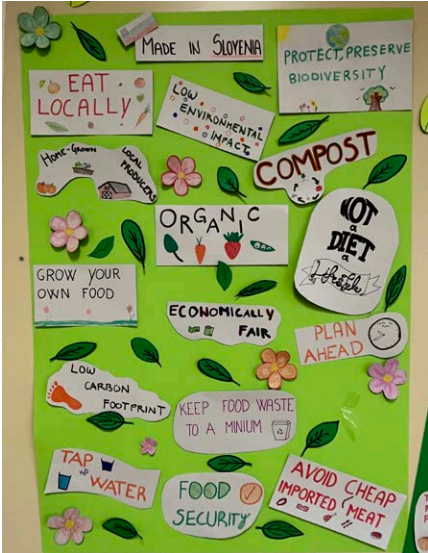 MADE IN SLOVENIA
PROTECT, PRESERVE
BIODIVERSITY
EAT
LOCALLY
LOW
ENVIRONMENTAL
IMPACT
HOME-GROWN
LOCAL
PRODUCERS
COMPOST
ORGANIC
NOT
a
DIET
a
Lifestyle
GROW YOUR
OWN FOOD
ECONOMICALLY
FAIR
PLAN
AHEAD
LOW
CARBON
FOOTPRINT
KEEP FOOD WASTE
TO A MINIUM
TAP
WATER
FOOD
SECURITY
AVOID CHEAP
IMPORTED MEAT